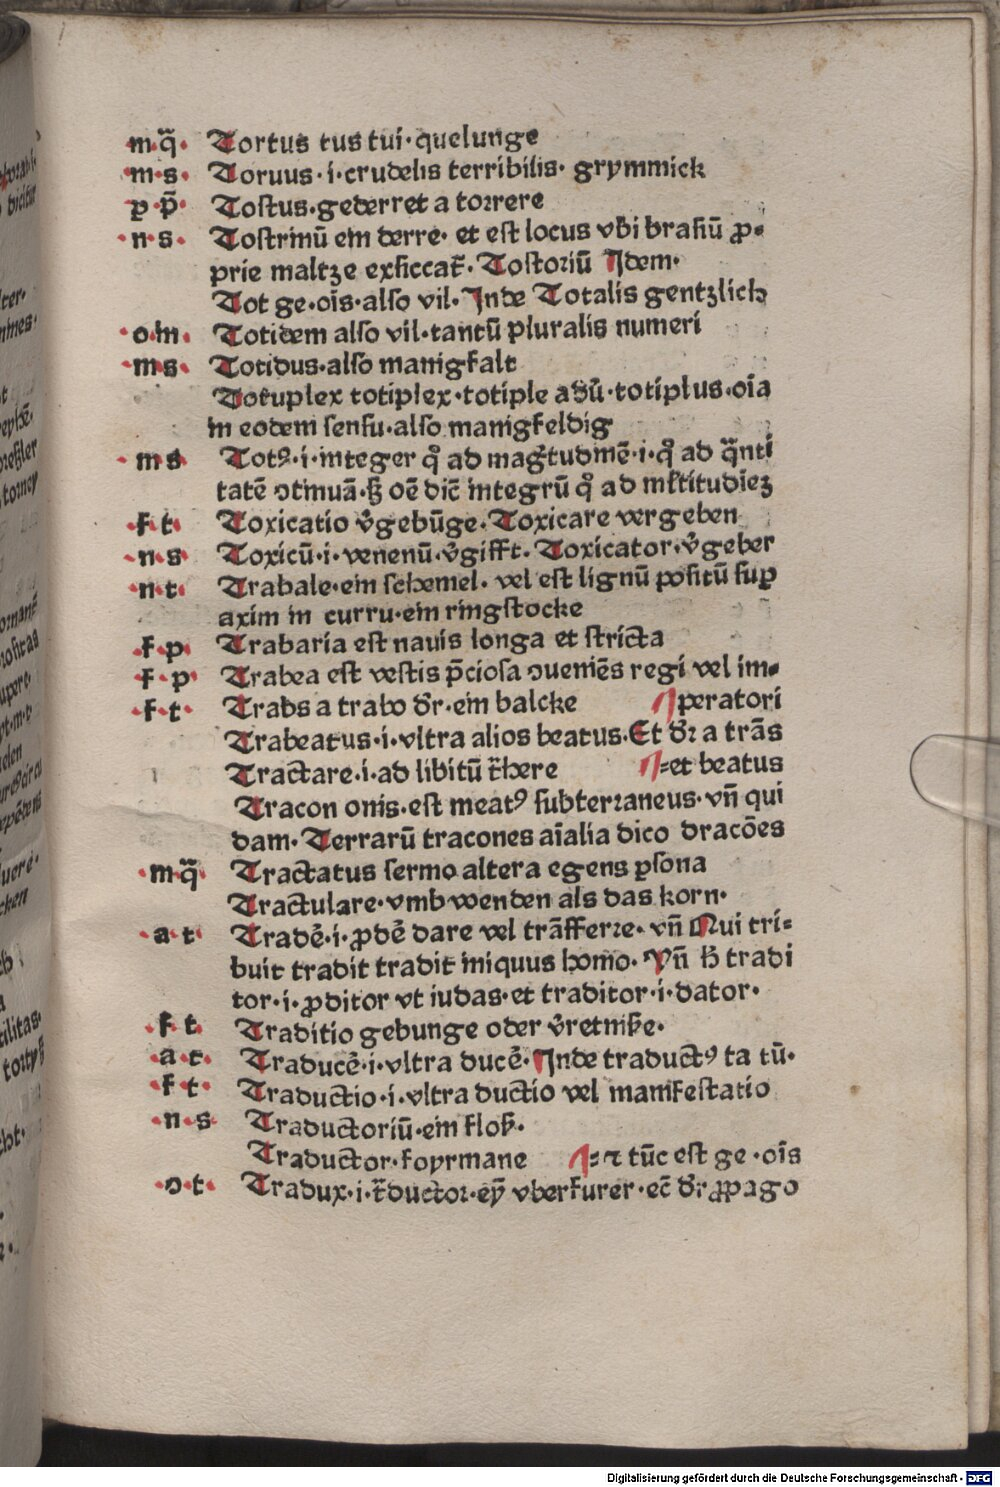 m·q̃· Tortus tus tui· quelunge
·m·s· Toruus·i·crudelis terribilis· grymmick
p·p̃· Tostus·gederret a torrere
·n·s· Tostrinū ein derre· et est locus vbi brasiū ꝓ⸗
prie maltze exsiccat᷑· Tostoriū Jdem·
Tot ge·oīs·also vil·Jnde Totalis gentzlich
·o·m· Totidem also vil·tantū pluralis numeri
·m·s· Totidus·also manigfalt
Totuplex totiplex·totiple adū̓·totiplus·oīa
in eodem sensu·also manigfeldig
·m s Totꝰ·i·integer qͦ ad magͥtudinē·i·qͦ ad q̈nti
tatē ꝯtinuā·ꝫ oē dic̄ integrū qͦ ad ml̓titudīeꝫ
·f·t· Toxicatio v̓gebūge·Toxicare vergeben
·n·s Toxicū·i·venenū·v̓gifft·Toxicator·v̓geber
·n·t· Trabale·ein schemel· vel est lignū positū suꝑ
axim in curru·ein ringstocke
·f·p· Trabaria est nauis longa et stricta
·f·p· Trabea est vestis p̄ciosa ꝯueniēs regi vel im⸗
·f·t· Trabs a trabo dr̄·ein balcke ¶peratori
Trabeatus·i·vltra alios beatus·Et dr̄ a trās
Tractare·i·ad libitū t̓here ¶⸗et beatus
Tracon onis·est meatꝰ subterraneus·vn̄ qui
dam· Terrarū tracones aīalia dico dracōes
·m·q̃· Tractatus sermo altera egens ꝑsona
Tractulare·vmb wenden als das korn·
·a·t· Tradē̓·i·ꝓdē̓ dare vel trāsferre·vn̄ Qui tri⸗
buit tradit tradit iniquus homo·Vn̄ h̓ tradi
tor·i·ꝓditor vt iudas·et traditor·i·dator·
·f·t· Traditio gebunge oder v̓retniße·
·a·t· Traducē̓·i·vltra ducē̓·Jnde traductꝰ ta tū·
·f·t· Traductio·i·vltra ductio vel manifestatio
·n·s Traductoriū·ein floß·
Traductor·foyrmane ¶⸗⁊ tūc est ge·oīs
·o·t· Tradux·i·t̓ductor·eȳ vberfurer·ec̄ dr̄ ꝓpago
Digitalisierung gefördert durch die Deutsche Forschungsgemeinschaft - DFG